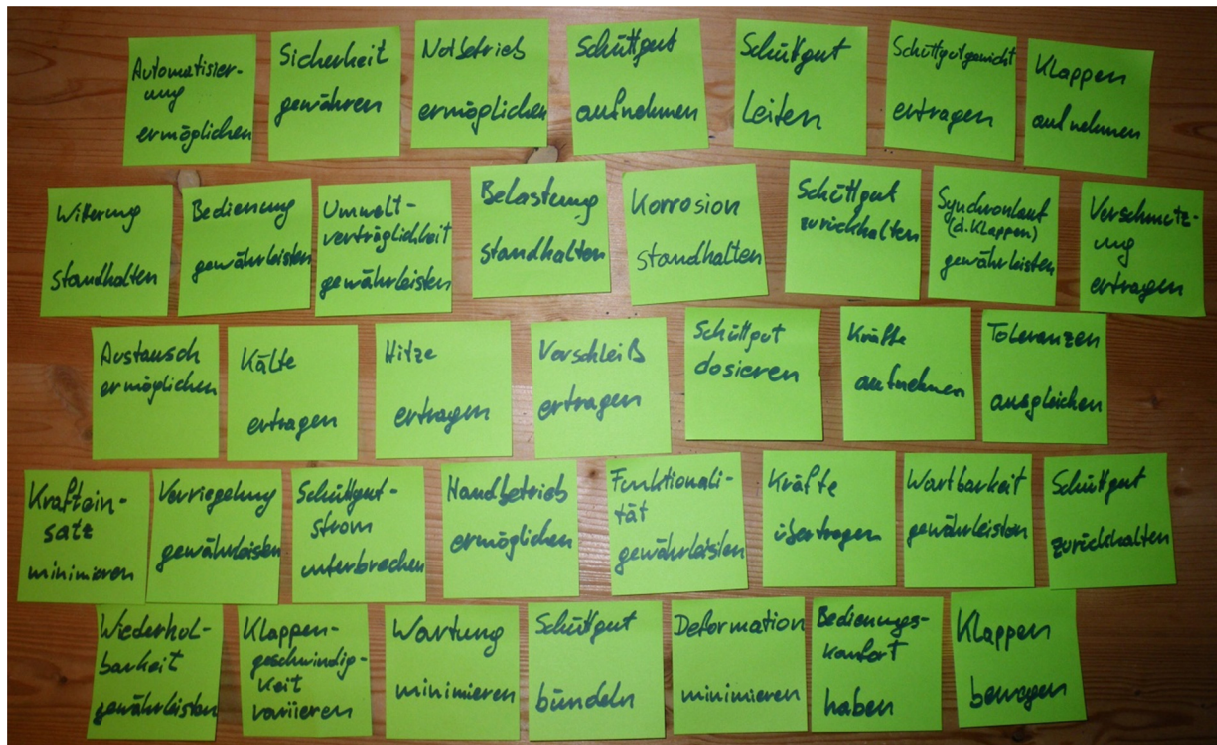 Automatisier-
ung
ermöglichen
Sicherheit
gewähren
Notbetrieb
ermöglichen
Schüttgut
aufnehmen
Schüttgut
leiten
Schüttgutgewicht
ertragen
Klappen
aufnehmen
Witterung
standhalten
Bedienung
gewährleisten
Umwelt-
verträglichkeit
gewährleisten
Belastung
standhalten
Korrosion
standhalten
Schüttgut
zurückhalten
Synchronlauf
(d. Klappen)
gewährleisten
Verschmutz-
ung
ertragen
Austausch
ermöglichen
Kälte
ertragen
Hitze
ertragen
Verschleiß
ertragen
Schüttgut
dosieren
Kräfte
aufnehmen
Toleranzen
ausgleichen
Kraftein-
satz
minimieren
Verriegelung
gewährleisten
Schüttgut-
strom
unterbrechen
Handbetrieb
ermöglichen
Funktionali-
tät
gewährleisten
Kräfte
übertragen
Wartbarkeit
gewährleisten
Schüttgut
zurückhalten
Wiederhol-
barkeit
gewährleisten
Klappen-
geschwindig-
keit
variieren
Wartung
minimieren
Schüttgut
bündeln
Deformation
minimieren
Bedienungs-
komfort
haben
Klappen
bewegen